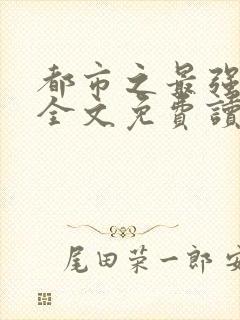 都市之最强
全文免費讀
尾田荣一郎 安